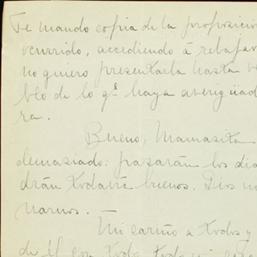 Te mando copia de la proposición
currido, accediendo á rebajar
no quiero presentarla hasta
blo de lo qe. haya averiguad
ra.
Bueno, Mamasita
demasiado: pasarán los día
drán todavía buenos. Dios no
narnos. —
Mi cariño a todos y
de tí con todo, todo mi